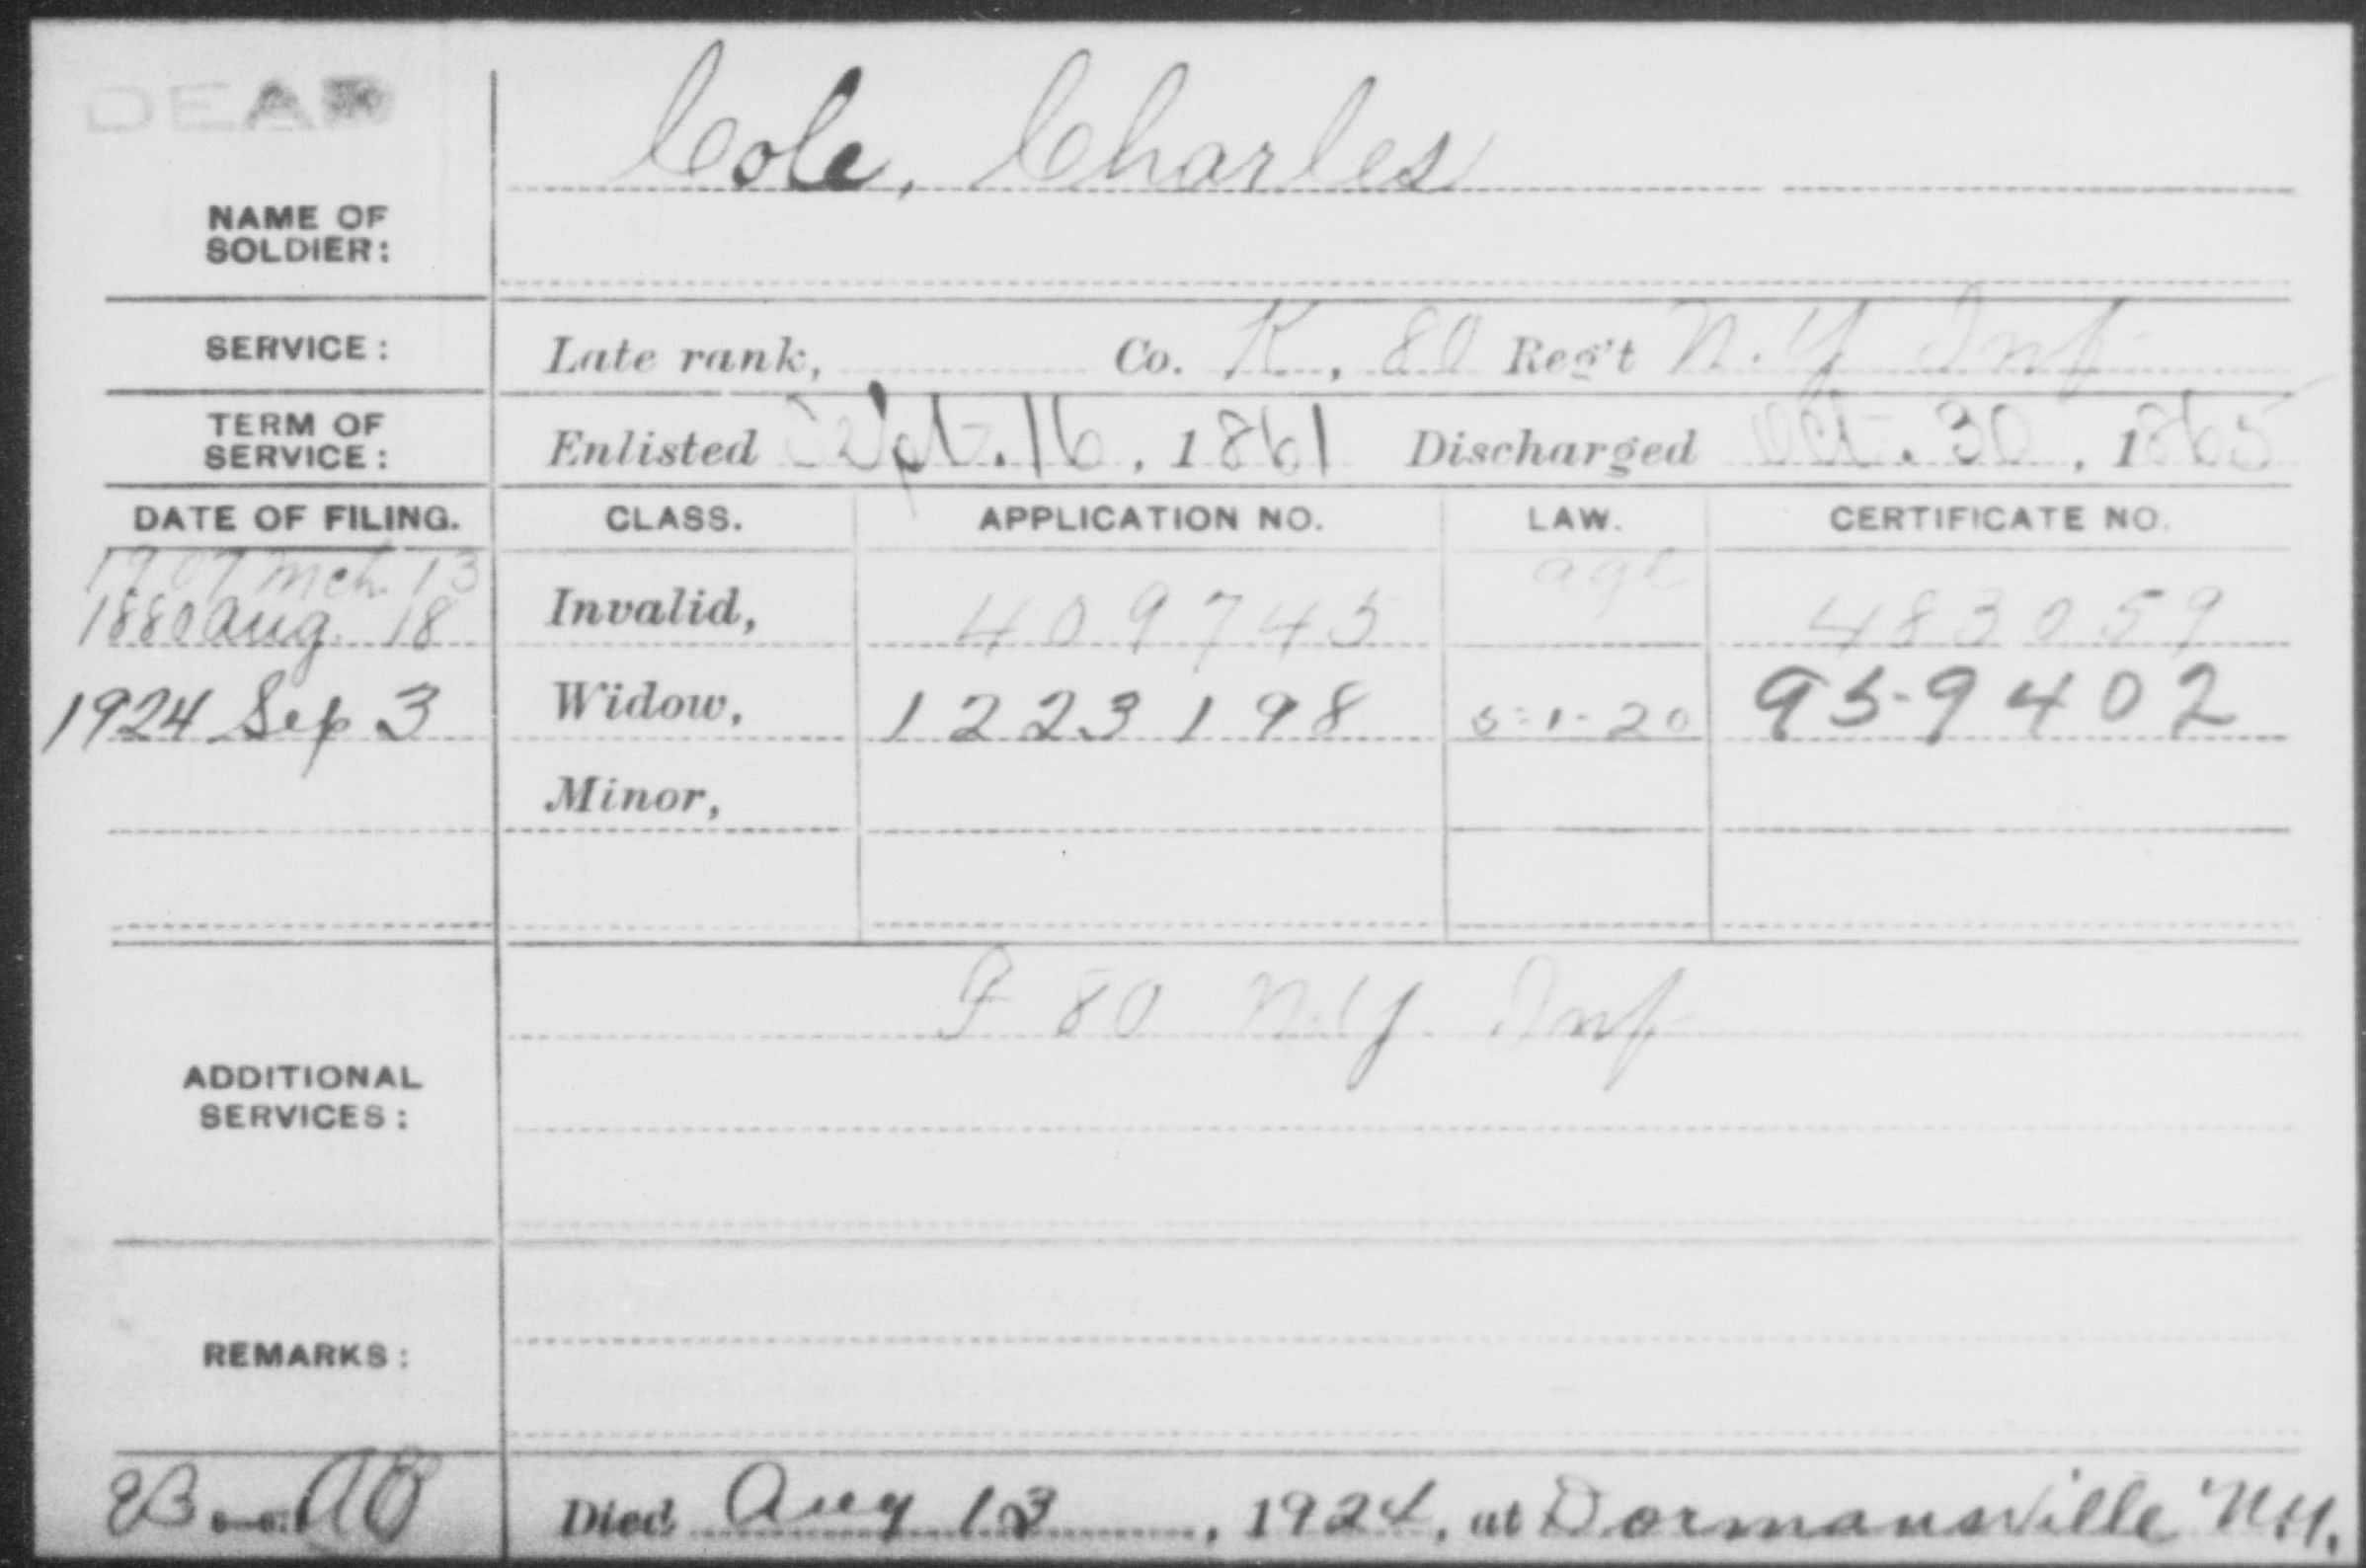 DEAD
Cole, Charles
NAME OF
SOLDIER:
SERVICE: Late rank, Co. K, 80 Reg't N.Y Inf
TERM OF
SERVICE: Enlisted Sept. 16, 1861 Discharged Oct. 30, 1865
DATE OF FILING. CLASS. APPLICATION NO. LAW. CERTIFICATE NO.
1907 Mch. 13 age
1880 Aug. 18 Invalid, 409745 483059
1924 Sep 3 Widow, 1223198 5-1-20 959402
Minor,
F 80 N.Y Inf
ADDITIONAL
SERVICES:
REMARKS:
Died Aug 13, 1924, at Dormansville N.Y.